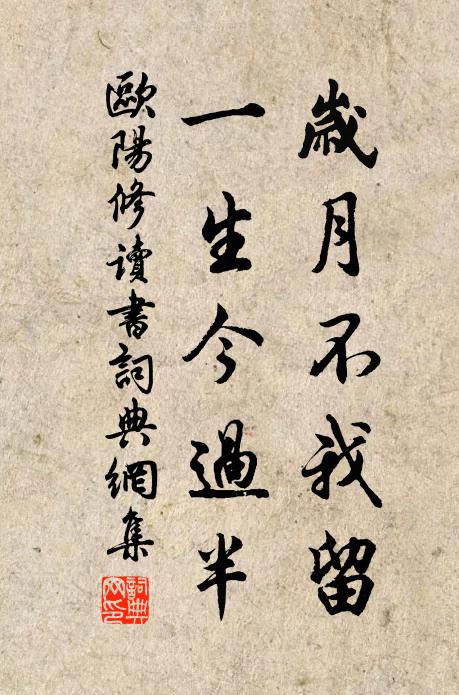 歲月不我留
一生今過半
歐陽修讀書詞典網集
詞典
网印